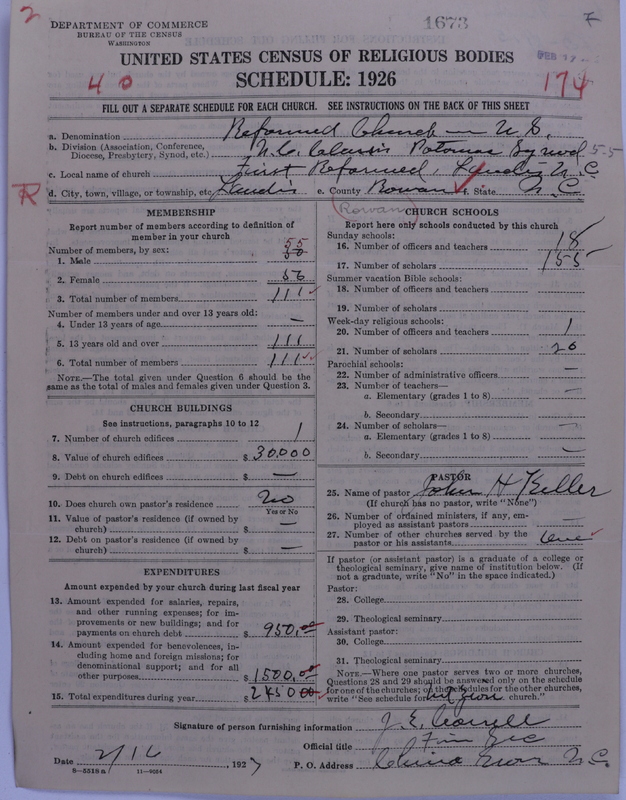 DEPARTMENT OF COMMERCE
BUREAU OF THE CENSUS
WASHINGTON
1673
UNITED STATES CENSUS OF RELIGIOUS BODIES
SCHEDULE: 1926
4 0
174
FILL OUT A SEPARATE SCHEDULE FOR EACH CHURCH. SEE INSTRUCTIONS ON THE BACK OF THIS SHEET
a. Denomination Reformed Church in U.S.
b. Division (Association, Conference, Diocese, Presbytery, Synod, etc.) N.C. Classis Potomac Synod 55
c. Local name of church First Reformed, Landis N.C.
R
d. City, town, village, or township, etc. Landis e. County Rowan f. State N.C.
Rowan
MEMBERSHIP
Report number of members according to definition of
member in your church
Number of members, by sex:
1. Male 55
2. Female 56
3. Total number of members 111
Number of members under and over 13 years old:
4. Under 13 years of age —
5. 13 years old and over 111
6. Total number of members 111
NOTE.—The total given under Question 6 should be the
same as the total of males and females given under Question 3.
CHURCH BUILDINGS
See instructions, paragraphs 10 to 12
7. Number of church edifices 1
8. Value of church edifices $ 30,000
9. Debt on church edifices $ —
10. Does church own pastor's residence No
Yes or No
11. Value of pastor's residence (if owned by
church) $ —
12. Debt on pastor's residence (if owned by
church) $ —
EXPENDITURES
Amount expended by your church during last fiscal year
13. Amount expended for salaries, repairs,
and other running expenses; for im-
provements or new buildings; and for
payments on church debt $ 950.00
14. Amount expended for benevolences, in-
cluding home and foreign missions; for
denominational support; and for all
other purposes $ 1500.00
15. Total expenditures during year $ 245000
CHURCH SCHOOLS
Report here only schools conducted by this church
Sunday schools:
16. Number of officers and teachers 18
17. Number of scholars 155
Summer vacation Bible schools:
18. Number of officers and teachers
19. Number of scholars
Week-day religious schools:
20. Number of officers and teachers 1
21. Number of scholars 20
Parochial schools:
22. Number of administrative officers —
23. Number of teachers—
a. Elementary (grades 1 to 8) —
b. Secondary
24. Number of scholars—
a. Elementary (grades 1 to 8) —
b. Secondary —
PASTOR
25. Name of pastor John H Keller
(If church has no pastor, write "None")
26. Number of ordained ministers, if any, em-
ployed as assistant pastors —
27. Number of other churches served by the
pastor or his assistants One
If pastor (or assistant pastor) is a graduate of a college or
theological seminary, give name of institution below. (If
not a graduate, write "No" in the space indicated.)
Pastor:
28. College
29. Theological seminary
Assistant pastor:
30. College
31. Theological seminary
NOTE.—Where one pastor serves two or more churches,
Questions 28 and 29 should be answered only on the schedule
for one of the churches; on the schedules for the other churches,
write "See schedule for Mt Zion church."
Signature of person furnishing information
Official title Fin Sec
Date 2/16, 1927 P. O. Address China Grove N.C.
8—5518a 11—9024